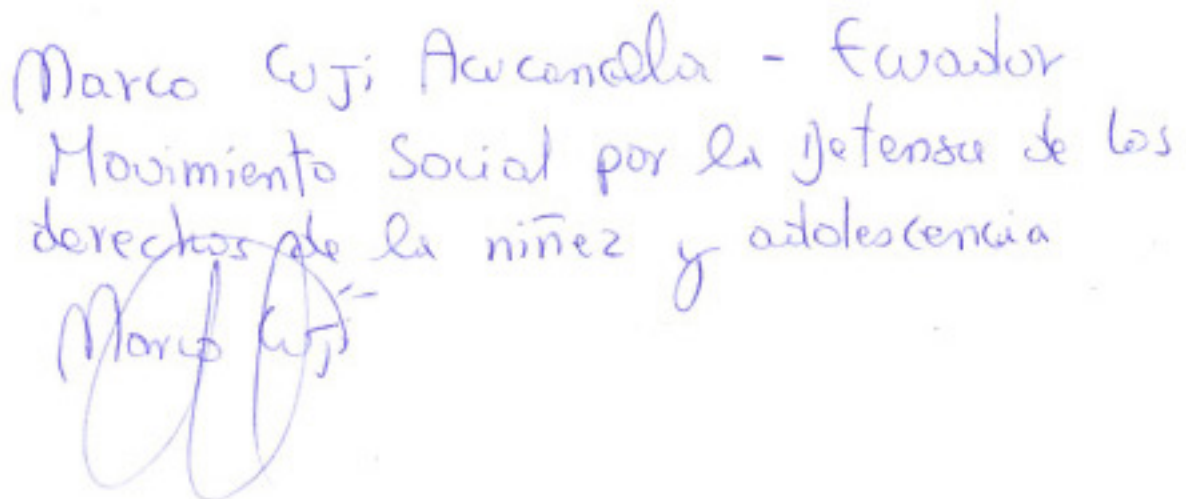 Marco Cuji Acucancella - Ecuador
Movimiento Social por la Defensa de los
derechos de la niñez y adolescencia
Marco Cuji